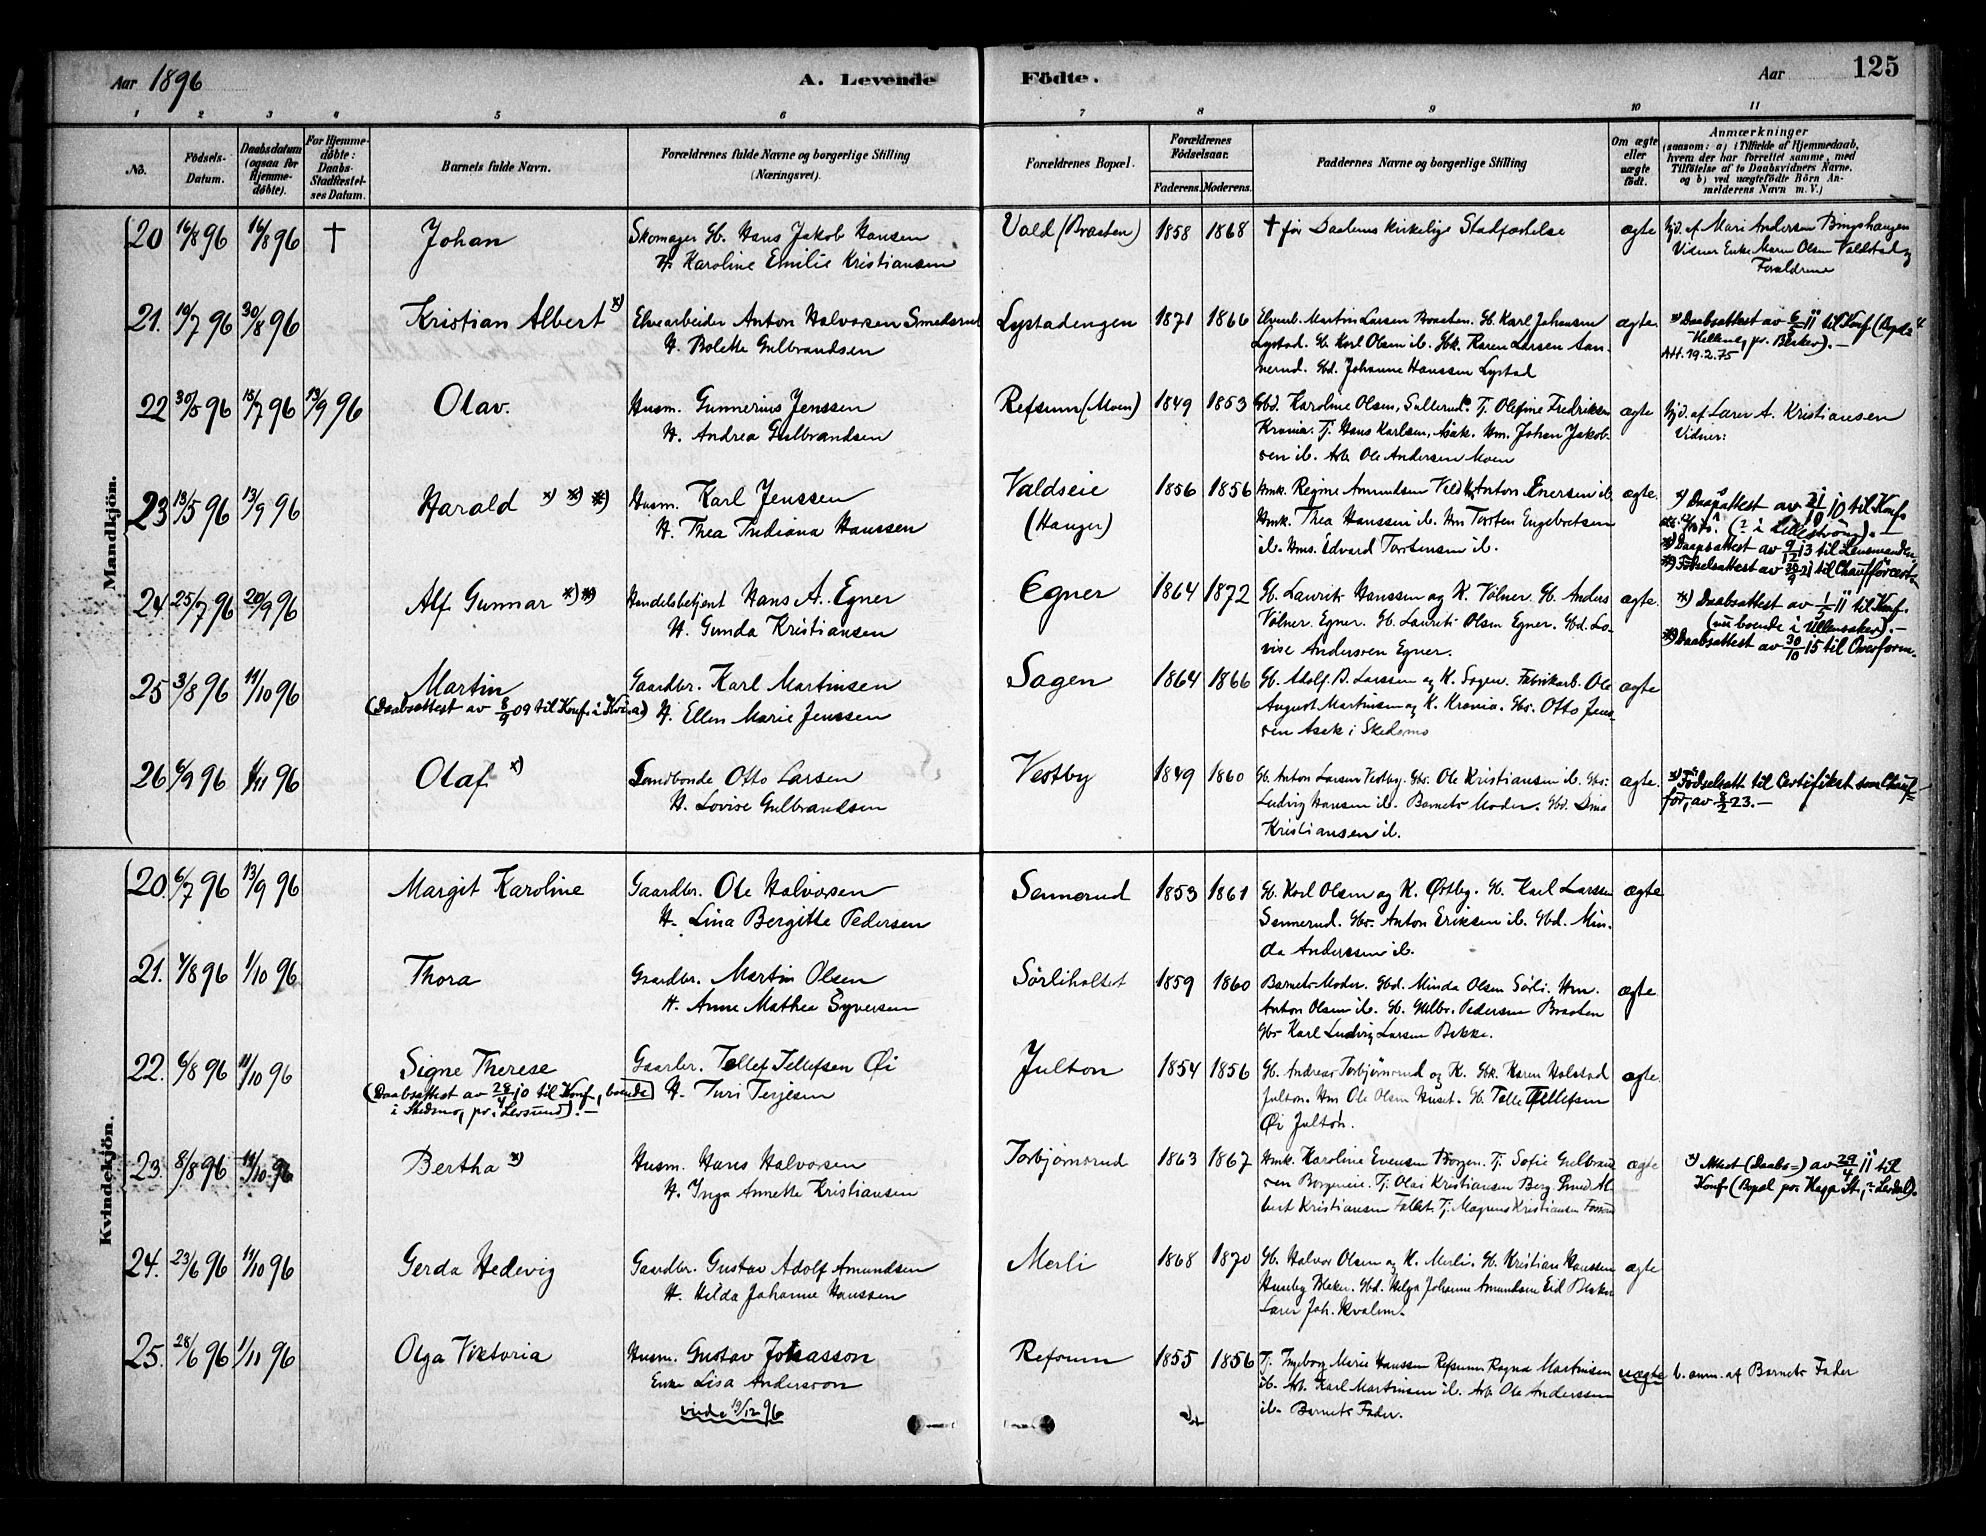 Aar 1896
A. Levende
Födte.
Aar
125
1 2 3 4 5 6 7 8 9 10 11
No.
Födsels-Datum.
Daabsdatum (ogsaa for Hjemme-döbte).
For Hjemme-döbte: Daabs-Stadfæstel-ses Datum.
Barnets fulde Navn.
Forældrenes fulde Navne og borgerlige Stilling (Næringsvei).
Forældrenes Bopæl.
Forældrenes Födselsaar.
Faderens. Moderens.
Faddernes Navne og borgerlige Stilling
Om ægte eller uægte födt.
Anmærkninger
(saasom: a) i Tilfælde af Hjemmedaab, hvem der har forrettet samme, med Tilföielse af to Daabsvidners Navne, og b) ved uægtefödte Börn An-melderens Navn m. V.)
Mandkjön.
20 16/8 96 16/8 96 † Johan
Skomager Gb. Hans Jakob Hansen
H. Karoline Emilie Kristiansen
Vald (Braaten) 1858 1868 † før Daabens kirkelige Stadfæstelse ægte
Hjd. af Mari Andersen Bingshaugen
Vidner Enke Maren Olsen Valdstad og
Forældrene
21. 19/7 96 30/8 96 Kristian Albert x)
Elvearbeider Anton Halvorsen Smedsrud
H. Bolette Gulbrandsen
Lystadengen 1871 1866
Elvearb. Martin Larsen Braaten. Gb. Karl Johansen
Lystad. Gb. Karl Olsen ib. Gbk. Karen Larsen San-
nerud. Gbd. Johanne Hanssen Lystad
ægte.
x) Daabsattest av 6/5 11 til Konf.
Att. 19.2.75
22 30/5 96 15/7 96 13/9 96 Olav.
Husm. Gunnerius Jenssen
H. Andrea Gulbrandsen
Refsum (Moen) 1849 1853
Gbd. Karoline Olsen, Sullerud. Tj. Olefine Fredriksen
Krania. Tj. Hans Karlsen, Asak. Hm. Johan Jakob-
sen ib. Arb. Ole Andersen Moen
ægte
Hjd. af Lærer A. Kristiansen
Vidner:
23 13/5 96 13/9 96 Harald x) x) x)
Husm. Karl Jenssen
H. Thea Indiana Hanssen
Valdseie
(Hanger)
1856 1856
Hmk. Regine Amundsen Anton Enersen ib.
Hmk. Thea Hanssen ib. Hm Torsten Engebretsen
ib. Hms. Edvard Torstensen ib.
ægte.
x) Daabsattest av 10 til Konf.
(? i Lilleström). —
x) Daabsattest av 9/12 13 til Lensmanden
x) Födselsattest av 30/9 21 til
24. 25/7 96 20/9 96 Alf Gunnar x) x)
Handelsbetjent Hans A. Egner
H. Gunda Kristiansen
Egner 1864 1872
Gb. Laurits Hanssen og K. Völner. Gb. Anders
Völner. Egner. Gb. Laurits Olsen Egner. Gbd. Lo-
vise Andersen Egner.
ægte.
x) Daabsattest av 1/5 11 til Konf.
(nu boende i Ullensaker). —
x) Daabsattest av 30/10 15 til
25 3/8 96 11/10 96 Martin
(Daabsattest av 8/9 09 til Konf. i )
Gaardbr. Karl Martinsen
H. Ellen Marie Jenssen
Sagen 1864 1866
Gb. Adolf B. Larssen og K. Sagen. Fabrikarb. Ole
August Martinsen og K. Krania. Gbs. Otto Jens-
sen Asak i Skedsmo
ægte
26 6/9 96 1/11 96 Olaf x)
Landbonde Otto Larsen
H. Lovise Gulbrandsen
Vestby 1849 1860
Gb. Anton Larsen Vestby. Gbs. Ole Kristiansen ib. Gbs:
Ludvig Hansen ib. Barnets Moder. Gbd. Dina
Kristiansen ib.
ægte.
x) Födselsatt til Certifikat som Chauf-
för, av 8/2 23. —
Kvindekjön.
20. 6/7 96 13/9 96 Margit Karoline
Gaardbr. Ole Halvorsen
H. Lina Bergitte Pedersen
Sennerud 1853 1861
Gb. Karl Olsen og K. Østby. Gb. Karl Larssen
Sennerud. Gbs. Anton Eriksen ib. Gbd. Min-
da Anderssen ib.
ægte
21. 4/8 96 1/10 96 Thora
Gaardbr. Martin Olsen
H. Anne Mathea Syversen
Sörliholtet 1859 1860
Barnets Moder. Gbd. Minda Olsen Sörli. Hm.
Anton Olsen ib. Gb. Gulbr. Pedersen Braaten
Gbs Karl Ludvig Larsen Bekke.
ægte.
22. 6/8 96 11/10 96 Signe Therese
(Daabsattest av 28/4 10 til Konf., boende
i Skedsmo, pr. Lersund). —
Gaarbr. Tellef Tellefsen Øi
H. Turi Terjesen
Julton 1854 1856
Gb. Andreas Torbjørnsrud og K. Gbk. Karen Holstad
Julton. Hm Ole Olsen Huset. Gb. Telle Tellefsen
Øi Julton.
ægte.
23. 8/8 96 11/10 96 Bertha x)
Husm. Hans Halvorsen
H. Inga Annette Kristiansen
Torbjørnsrud 1863 1867
Hmk. Karoline Evensen Borgen. Tj. Sofie Gulbrand-
sen Borgeneie. Tj. Olai Kristiansen Berg. Smed Al-
bert Kristiansen Fallet. Tj. Magnus Kristiansen
ægte
x) Attest (Daabs=) av 29/4 11 til
Konf. (Bopæl pr. Haga St., ).
24. 23/6 96 11/10 96 Gerda Hedevig
Gaardbr. Gustav Adolf Amundsen
H. Hilda Johanne Hanssen
Merli 1868 1870
Gb. Halvor Olsen og K. Merli. Gb. Kristian Hanssen
Huseby Blaker. Gbd. Helga Johanne Amundsen Eid Blaker
Lærer Joh. Kvalem.
ægte
25. 28/6 96 1/11 96 Olga Viktoria
Husm. Gustav Johasson
Enke Lisa Andersson
viede 19/12 96
Refsum 1855 1856
Tj. Ingeborg Marie Hanssen Refsum. Ragna Martinsen
ib. Arb. Karl Martinsen ib. Arb. Ole Anderssen
ib. Barnets Fader.
uægte
b. anm. af Barnets Fader